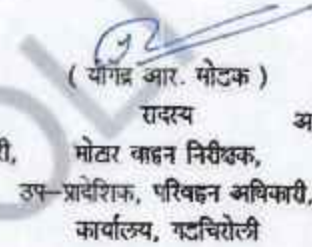 ( योगेंद्र आर. मोडक )
सदस्य
अ
री, मोटार वाहन निरीक्षक,
उप-प्रादेशिक, परिवहन अधिकारी,
कार्यालय, गडचिरोली